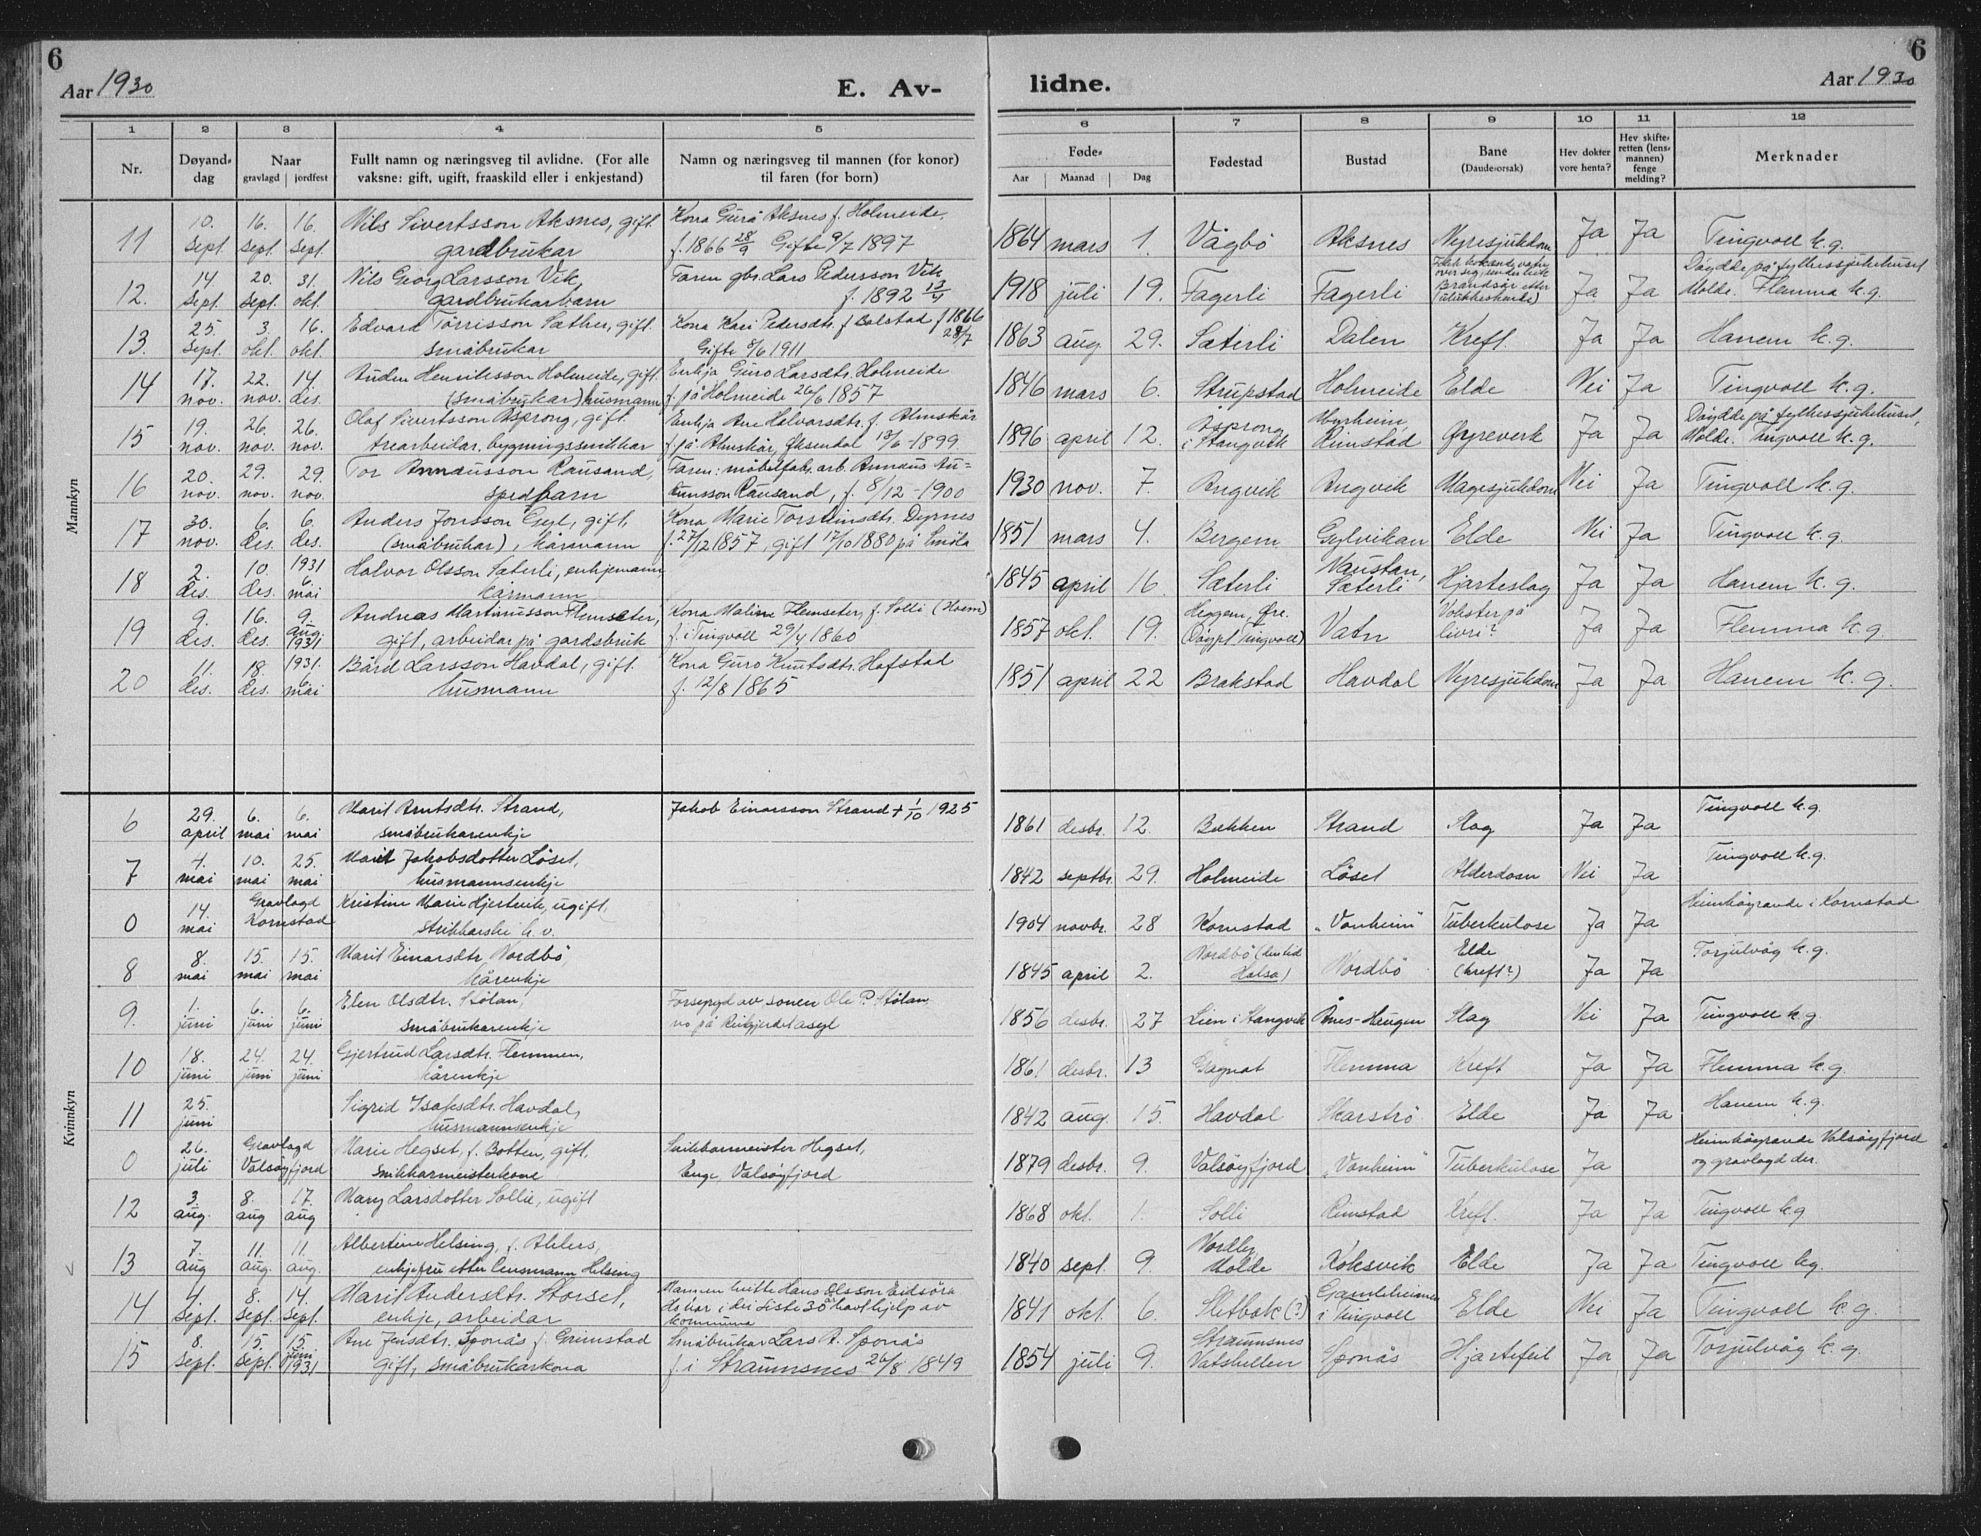 6
Aar 1930
E. Av-
lidne.
Aar 1930
6
1 2 3 4 5 6 7 8 9 10 11 12
Nr.
Døyand-dag
Naar
gravlagd | jordfest
Fullt namn og næringsveg til avlidne. (For alle
vaksne: gift, ugift, fraaskild eller i enkjestand)
Namn og næringsveg til mannen (for konor)
til faren (for born)
Føde-
Aar Maanad Dag
Fødestad
Bustad
Bane
(Daude-orsak)
Hev dokter
vore henta?
Hev skifte-
retten (lens-
mannen)
fenge
melding?
Merknader
Mannkyn
11 10. sept. 16. sept. 16. sept. Nils Sivertsson Aksnes, gift. gardbrukar Kona Guro Aksnes f. Holmeide, f. 1866 28/9 Gifte 9/7 1897 1864 mars 1. Vågbø Aksnes Nyresjukdom Ja Ja Tingvoll k.g.
12. 14 sept. 20. sept. 31. okt. Nils Georg Larsson Vik gardbrukarbarn Faren gbr. Lars Pedersson Vik f. 1892 13/4 1918 juli 19. Fagerli Fagerli Ja Ja Døydde på fylkessjukehuset Molde. Flemma k.g.
13. 25. sept. 3. okt. 16. okt. Edvard Tørrisson Sæther, gift. småbrukar Kona Kari Pedersdtr. f. Bolstad f 1866 28/7 Gifte 8/6 1911 1863 aug. 29. Sæterli Dalen Kreft. Ja Ja Hanem k.g.
14 17. nov. 22. nov. 14 des. Auden Henriksson Holmeide, gift. (småbrukar) husmann Enkja Guro Larsdtr. Holmeide f. på Holmeide 26/6 1857 1846 mars 6. Strupstad Holmeide Elde Nei Ja Tingvoll k.g.
15 19. nov. 26. nov. 26. nov. Olaf Sivertsson Asprong, gift. trearbeidar, bygningssnikkar Enkja Ane Halvorsdtr. f. Almskår f. på Almskår, Øksendal 13/6-1899 1896 april 12. Asprong i Stangvik Rimstad Ørjreverk Ja Ja Døydde på fylkessjukehuset, Molde. Tingvoll k.g.
16 20. nov. 29. nov. 29. nov. Tor Annæusson Rausand, spedbarn Faren: møbelfabr. arb. Annæus Au-kunsson Rausand, f. 8/12-1900 1930 nov. 7. Angvik Angvik Magesjukdom Nei Ja Tingvoll k.g.
17 30. nov. 6. des. 6. des. Anders Jonsson Gyl, gift, (småbrukar), kårmann Kona Marie Torsteinsdtr. Dyrnes f. 27/12 1857, gift 17/10 1880 på Smøla 1851 mars 4. Bergem Gylvikan Elde Nei Ja Tingvoll k.g.
18 2. des. 10. des. 1931 6. mai Halvor Olsson Sæterli, enkjemann, kårmann 1845 april 16. Sæterli Naustan, Sæterli Hjarteslag Ja Ja Hanem k.g.
19 9. des. 16. des. 9. aug. 1931 Andreas Martinusson Flemsæter, gift, arbeidar på gardsbruk Kona Maline Flemsæter, f. Solli (Hoem) f. i Tingvoll 29/4 1860 1857 okt. 19. Heggem, Øre. (Døypt Tingvoll) Vatn Volster på livri? Ja Ja Flemma k.g.
20 11. des. 18. des. 1931. 6. mai Bård Larsson Havdal, gift. husmann Kona Guro Knutsdtr. Hafstad f. 12/8 1865 1851 april 22 Brakstad Havdal Nyresjukdom Ja Ja Hanem k.g.
Kvinnkyn
6 29. april 6. mai 6. mai Marit Arntsdtr. Strand, småbrukarenkje Jakob Einarsson Strand + 1/10 1925 1861 desbr. 12. Bakken Strand Slag Ja Ja Tingvoll k.g.
7 4. mai 10. mai 25. mai Marit Jakobsdotter Løset, husmannsenkje 1842 septbr. 29. Holmeide Løset Alderdom Nei Ja Tingvoll k.g.
0 14. mai Gravlagd Kornstad Kristine Marie Hjertvik, ugift, strikkarske h.v. 1904 novbr. 28 Kornstad "Vonheim" Tuberkulose Ja Ja Heimhøyrande i Kornstad
8 8. mai 15. mai 15. mai Marit Einarsdtr Nordbø, kårenkje 1845 april 2. Nordbø (den tid Halsa) Nordbø Elde (kreft?) Ja Ja Torjulvåg k.g.
9. 1. juni 6. juni 6. juni Elen Olsdtr. Stølan, småbrukarenkje Forsørgd av sonen Ole P. Stølan, no på Reitgjerdet asyl 1856 desbr. 27 Lien i Stangvik Årnes-Haugen Slag Nei Ja Tingvoll k.g.
10 18. juni 24. juni 24. juni Gjertrud Larsdtr. Flemmen, kårenkje 1861 desbr. 13 Gagnat Flemma Kreft Ja Ja Flemma k.g.
11 25. juni Sigrid Isaksdtr. Havdal, husmannsenkje 1842 aug. 15. Havdal Skarstrø Elde Ja Ja Hanem k.g.
0 26. juli Gravlagd Valsøyfjord Marie Hegset, f. Botten, gift, snikkarmeisterkone Snikkarmeister Hegset, Enge Valsøyfjord 1879 desbr. 9. Valsøyfjord "Vonheim" Tuberkulose Ja Heimhøyrande Valsøyfjord og gravlagd der.
12 3. aug. 8. aug 17. aug Mary Larsdotter Sollie, ugift 1868 okt. 1. Solli Rimstad Kreft. Ja Ja Tingvoll k.g
13 7. aug 11. aug. 11. aug. Albertine Helsing, f. Ahlers, enkjefru etter lensmann Helsing 1840 sept. 9. Nordby Molde Koksvik Elde Ja Ja Tingvoll k.g.
14 4. sept. 8. sept. 14. sept. Marit Andersdtr. Storset, enkje, arbeidar Mannen heitte Hans Olsson Eidsøra kommuna 1841 okt. 6. Sletbak (?) Gamleheimen i Tingvoll Elde Nei Ja Tingvoll k.g.
15 8. sept. 15. sept. 15 juni 1931 Ane Jensdtr. Sponås f. Grimstad gift, småbrukarkona Småbrukar Lars A. Sponås f. i Straumsnes 26/8. 1849 1854 juli 9. Straumsnes Vatshellen Sponås Hjartefeil Ja Ja Torjulvåg k.g.